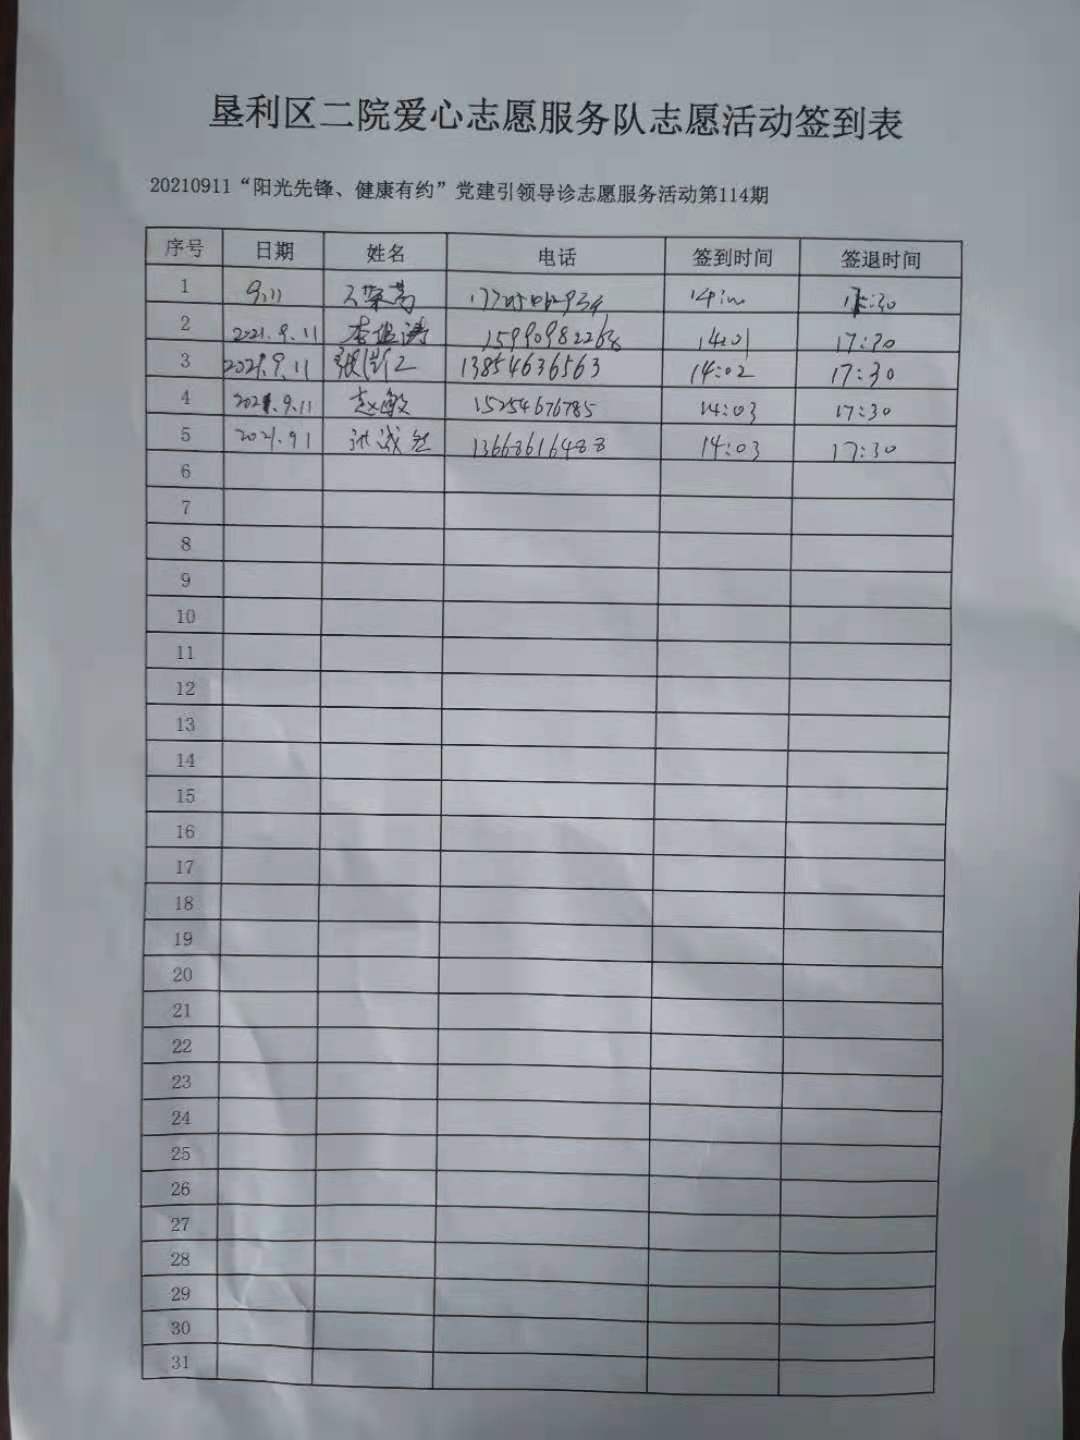 垦利区二院爱心志愿服务队志愿活动签到表
20210911“阳光先锋、健康有约”党建引领导诊志愿服务活动第114期
序号 日期 姓名 电话 签到时间 签退时间
1 9.11
2 2021.9.11 14:01 17:30
3 2021.9.11 13854636563 14:02 17:30
4 2021.9.11 赵敏 15254676785 14:03 17:30
5 2021.9.1 13668616488 14:03 17:30
6
7
8
9
10
11
12
13
14
15
16
17
18
19
20
21
22
23
24
25
26
27
28
29
30
31